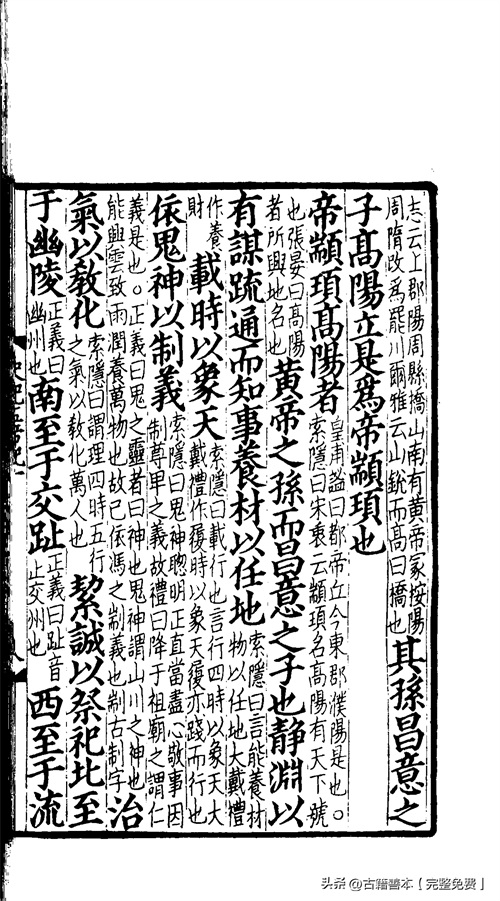 志云上郡陽周縣橋山南有黃帝冢按陽周隋改為羅川爾雅云山銳而高曰橋也其孫昌意之
子高陽立是為帝顓頊也
帝顓頊高陽者皇甫謐曰都帝丘今東郡濮陽是也○索隱曰宋衷云顓頊名高陽有天下號
也張晏曰高陽者所興地名也黃帝之孫而昌意之子也靜淵以
有謀疏通而知事養材以任地索隱曰言能養材物以任地大戴禮
作養財載時以象天索隱曰載行也言行四時以象天大戴禮作履時以象天履亦踐而行也
依鬼神以制義索隱曰鬼神聰明正直當盡心敬事因制尊卑之義故禮曰降于祖廟之謂仁
義是也○正義曰鬼之靈者曰神也鬼神謂山川之神也能興雲致雨潤養萬物也故己依馮之剬義也剬古制字治
氣以教化索隱曰謂理四時五行之氣以教化萬人也絜誠以祭祀北至
于幽陵正義曰幽州也南至于交趾正義曰趾音止交州也西至于流
头条@古籍善本【完整免费】